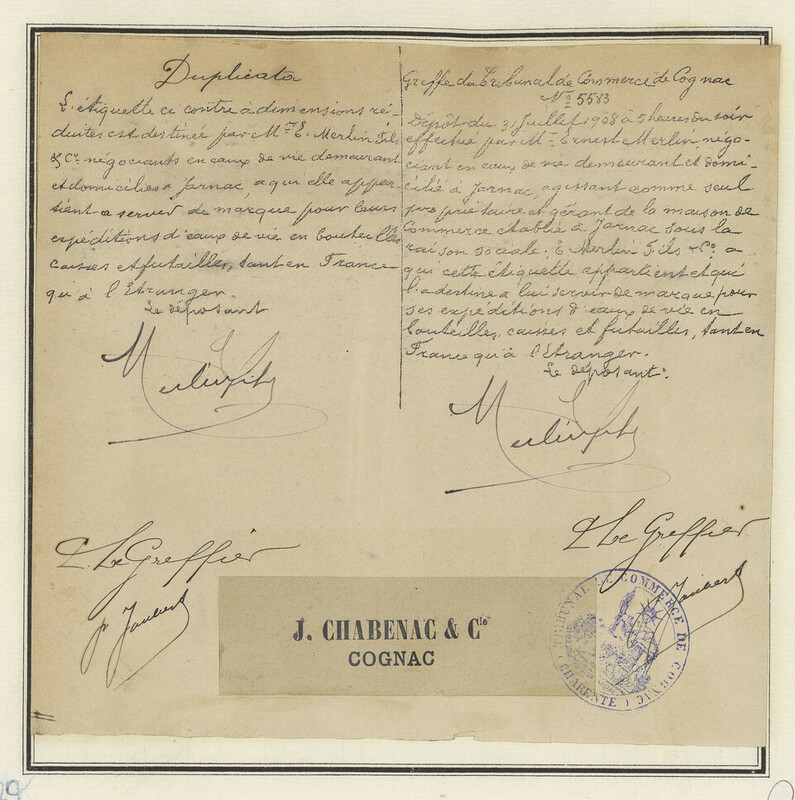 Duplicata
L'étiquette ci contre à dimensions ré-
duites est destinée par Mr. E. Merlin Fils
& Co. négociants en eaux de vie demeurant
et domiciliés à Jarnac, a qui elle appar-
tient a servir de marque pour leurs
expéditions d'eaux de vie en bouteilles
caisses et futailles, tant en France
qu'à l'Etranger.
Le déposant
Merlin fils
& Le Greffier
Greffe du Tribunal de Commerce de Cognac
No 5583
Dépôt du 31 Juillet 1908 à 5 heures du soir
effectué par Mr. Ernest Merlin, négo-
ciant en eaux de vie demeurant et domi-
cilié à Jarnac, agissant comme seul
propriétaire et gérant de la maison de
Commerce établie à Jarnac sous la
raison sociale. E. Merlin Fils & Co. a
qui cette étiquette appartient et qui
l'a destine a lui servir de marque pour
ses expéditions d'eaux de vie en
bouteilles, caisses et futailles, tant en
France qu'à l'Etranger.
Le déposant.
Merlin fils
& Le Greffier
J. CHABENAC & Cie
COGNAC
TRIBUNAL DE COMMERCE DE COGNAC
(CHARENTE)